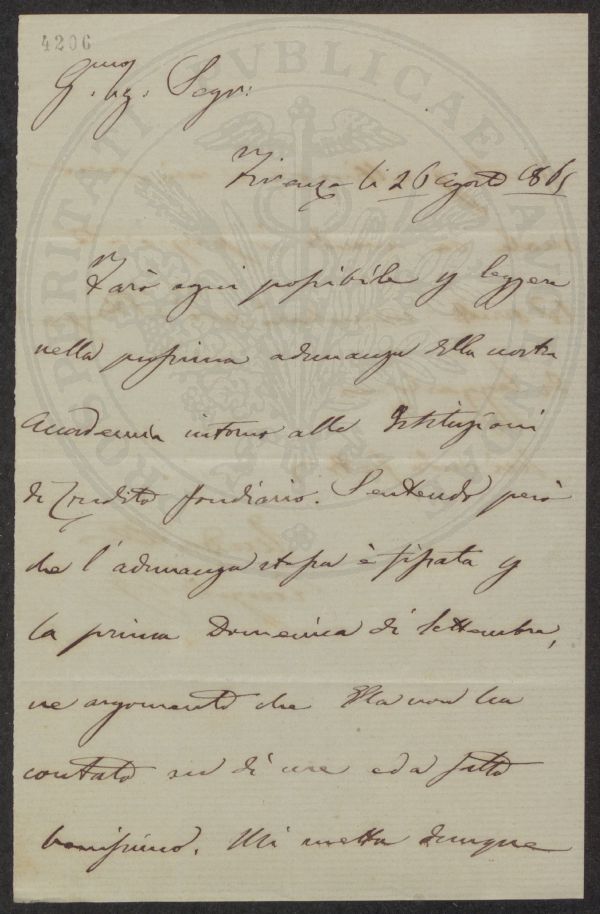 4206
G.mo Sig. Segr:
Firenze li 26 agosto 1865
Farò ogni possibile p leggere
nella prossima adunanza della nostra
Accademia intorno alle Istituzioni
di Credito fondiario. Sentendo però
che l'adunanza stessa è fissata p
la prima Domenica di Settembre,
ne argomento che Ella non ha
contato su di me ed a fatto
benissimo. Mi metta dunque
PROSPERITATI PUBLICAE AUGENDAE